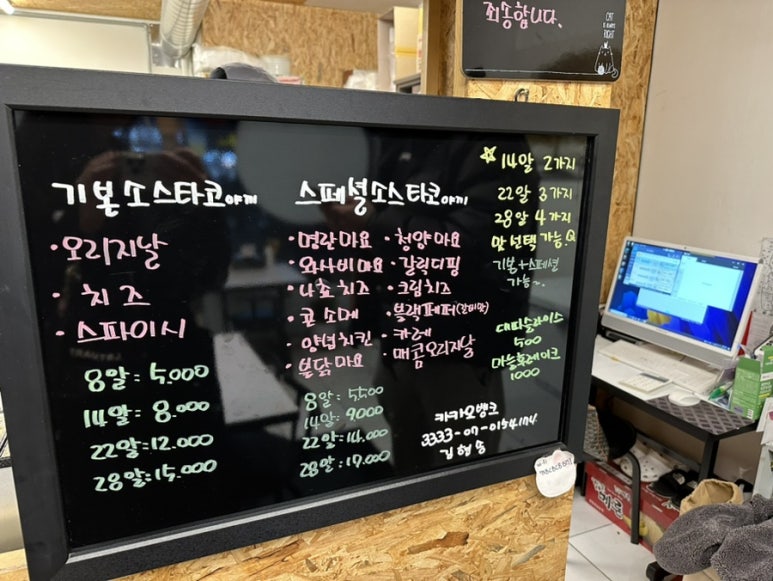 죄송합니다.
기본소스타코야끼
· 오리지날
· 치즈
· 스파이시
8알 : 5.000
14알 : 8.000
22알 : 12.000
28알 : 15.000
스페셜소스타코야끼
· 명란마요
· 와사비마요
· 나쵸치즈
· 콘소메
· 양념치킨
· 불닭마요
· 청양마요
· 갈릭디핑
· 크림치즈
· 블랙페퍼(갈비맛)
· 카레
· 매콤오리지날
8알 : 5500
14알 : 9000
22알 : 14.000
28알 : 17.000
☆ 14알 2가지
22알 3가지
28알 4가지
맛 선택 가능
기봉+스페셜
가능~.
500
마늘후레이크
1000
카카오뱅크
3333-07-0154174